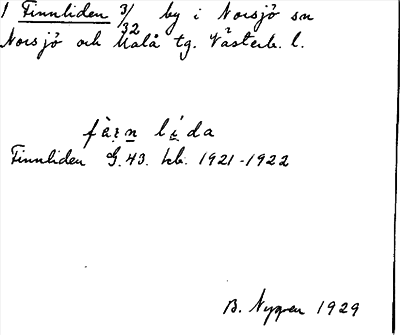 1 Finnliden 3/32 by i Norsjö sn
Norsjö och Malå tg. Västerb. l.
Finnliden G.43. kb. 1921-1922
B. Nygren 1929